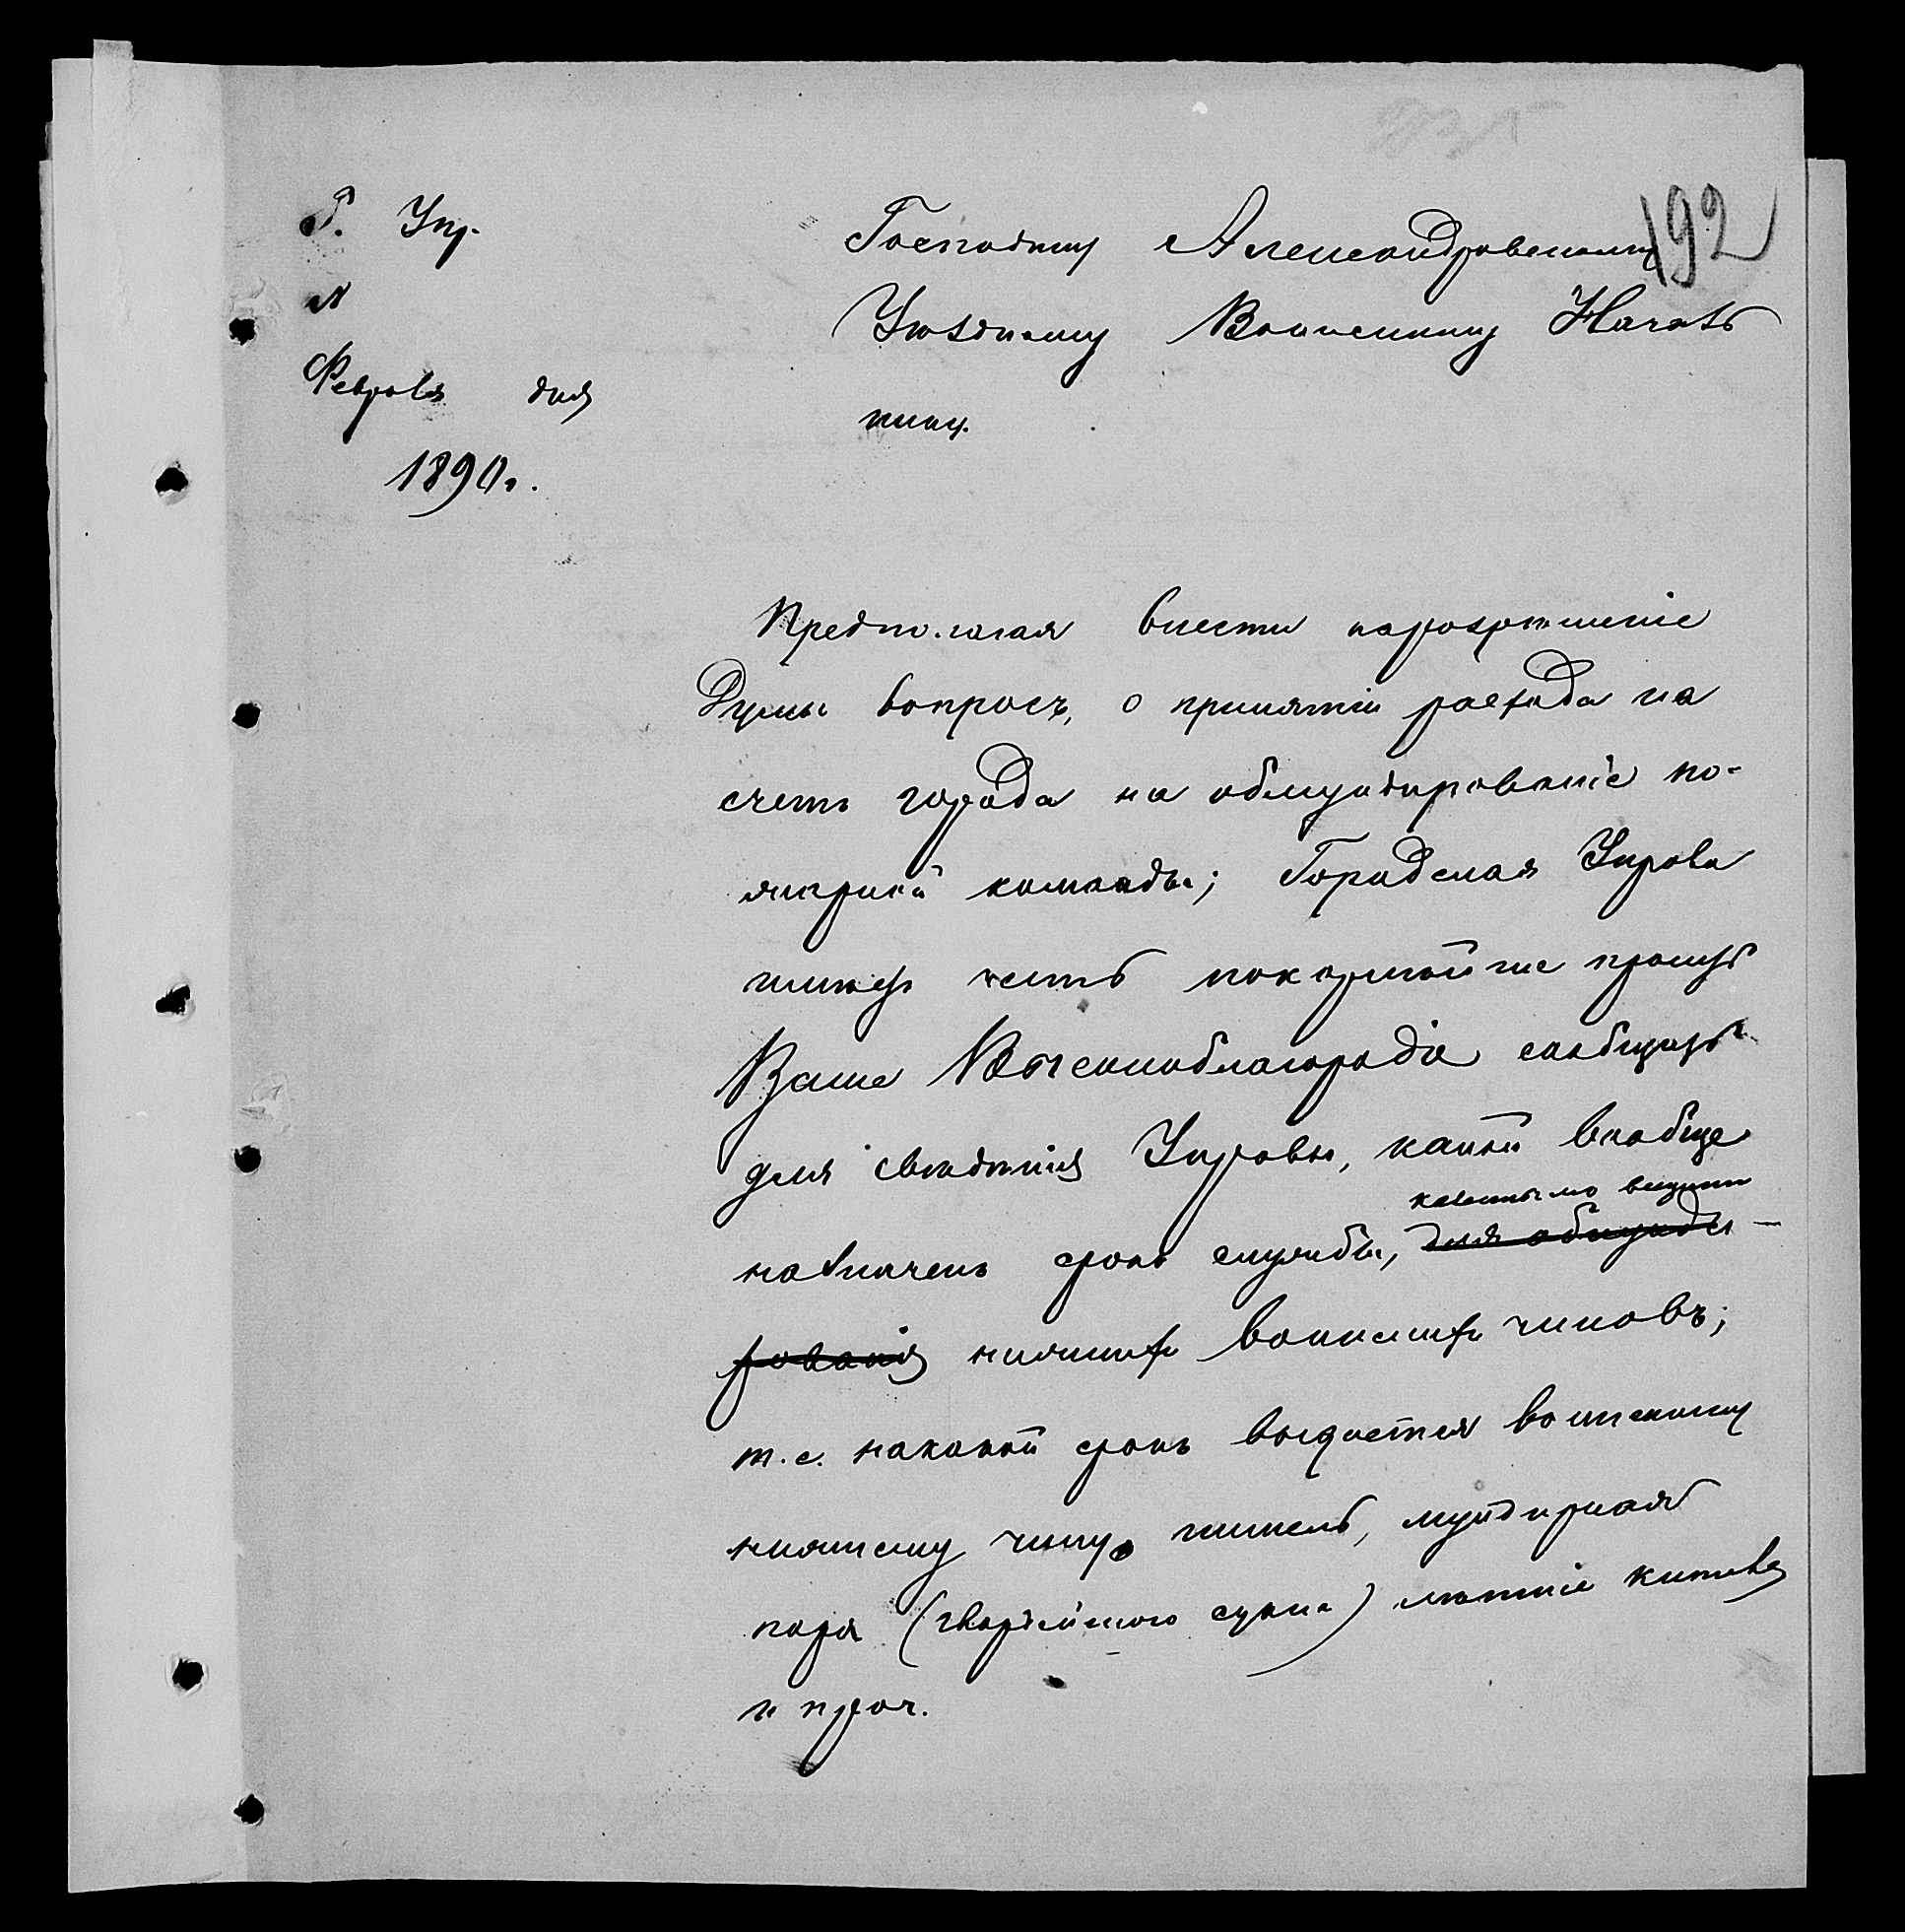 192
Г. Упр.
№
Февраля дня
1890 г.
Господину Александровскому
Уѣздному Воинскому Началь
нику.
Предполагая внести на разрѣшеніе
Думы вопросъ, о принятіи расхода на
счетъ города на обмундированіе по-
жарной команды; Городская Управа
имѣетъ честь покорнѣйше просить
Ваше Высокоблагородіе сообщить
для свѣдѣнія Управы, какой вообще
назначенъ срокъ службы, ~~для обмунди~~ —
~~рованія~~ нижнихъ воинскихъ чиновъ;
т.е. на какой срокъ выдается воинскому
нижнему чину шинель, мундирная
пара (гвардейского сукна) лѣтніе кителя
и проч.